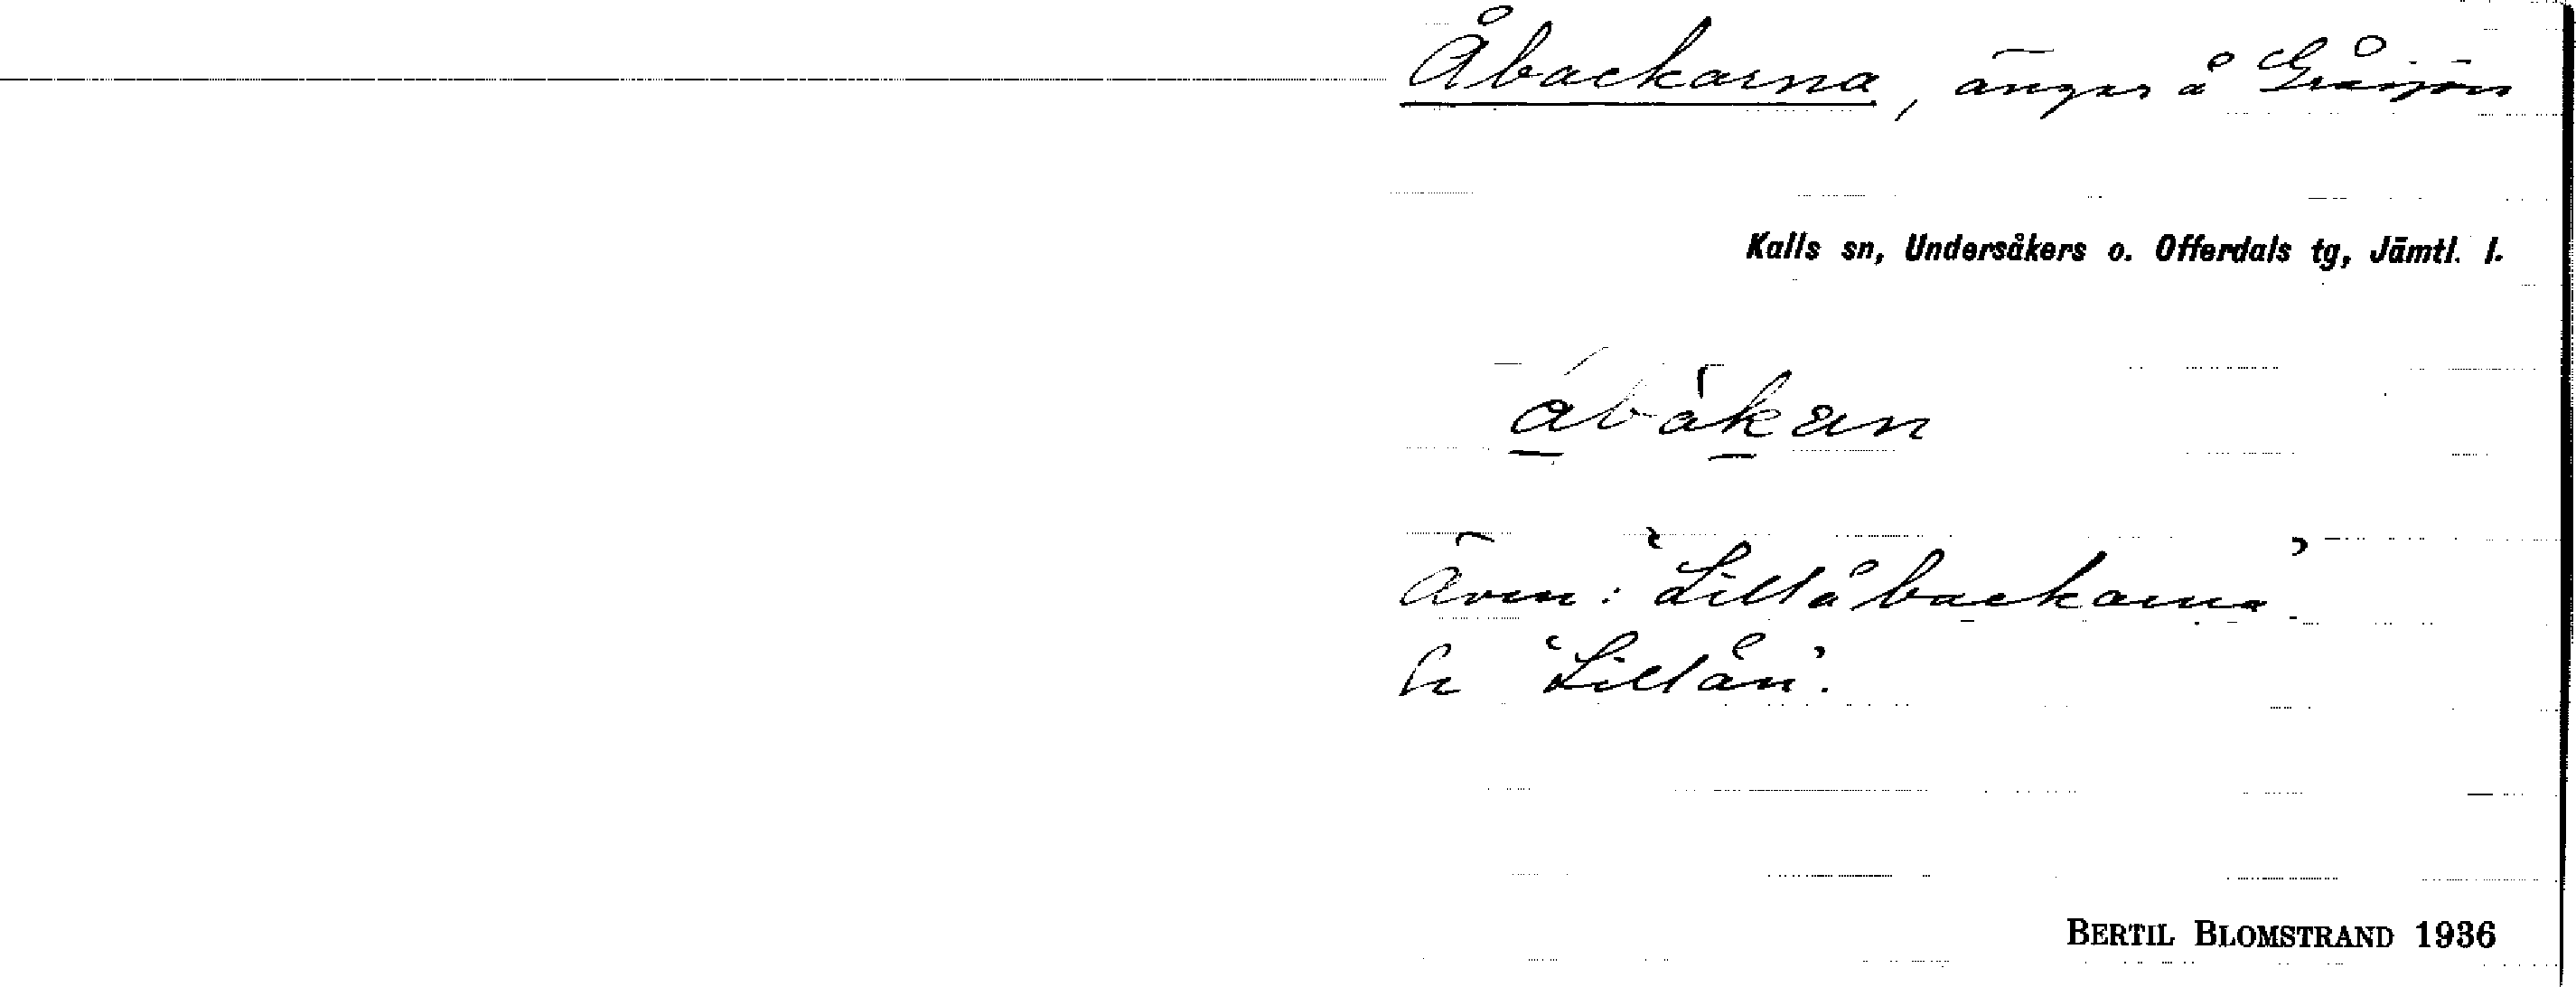 Åbackarna, ängar å Gråsjön
Kalls sn, Undersåkers o. Offerdals tg, Jämtl. l.
Även: "Lillåbackarna".
Se "Lillån".
BERTIL BLOMSTRAND 1936